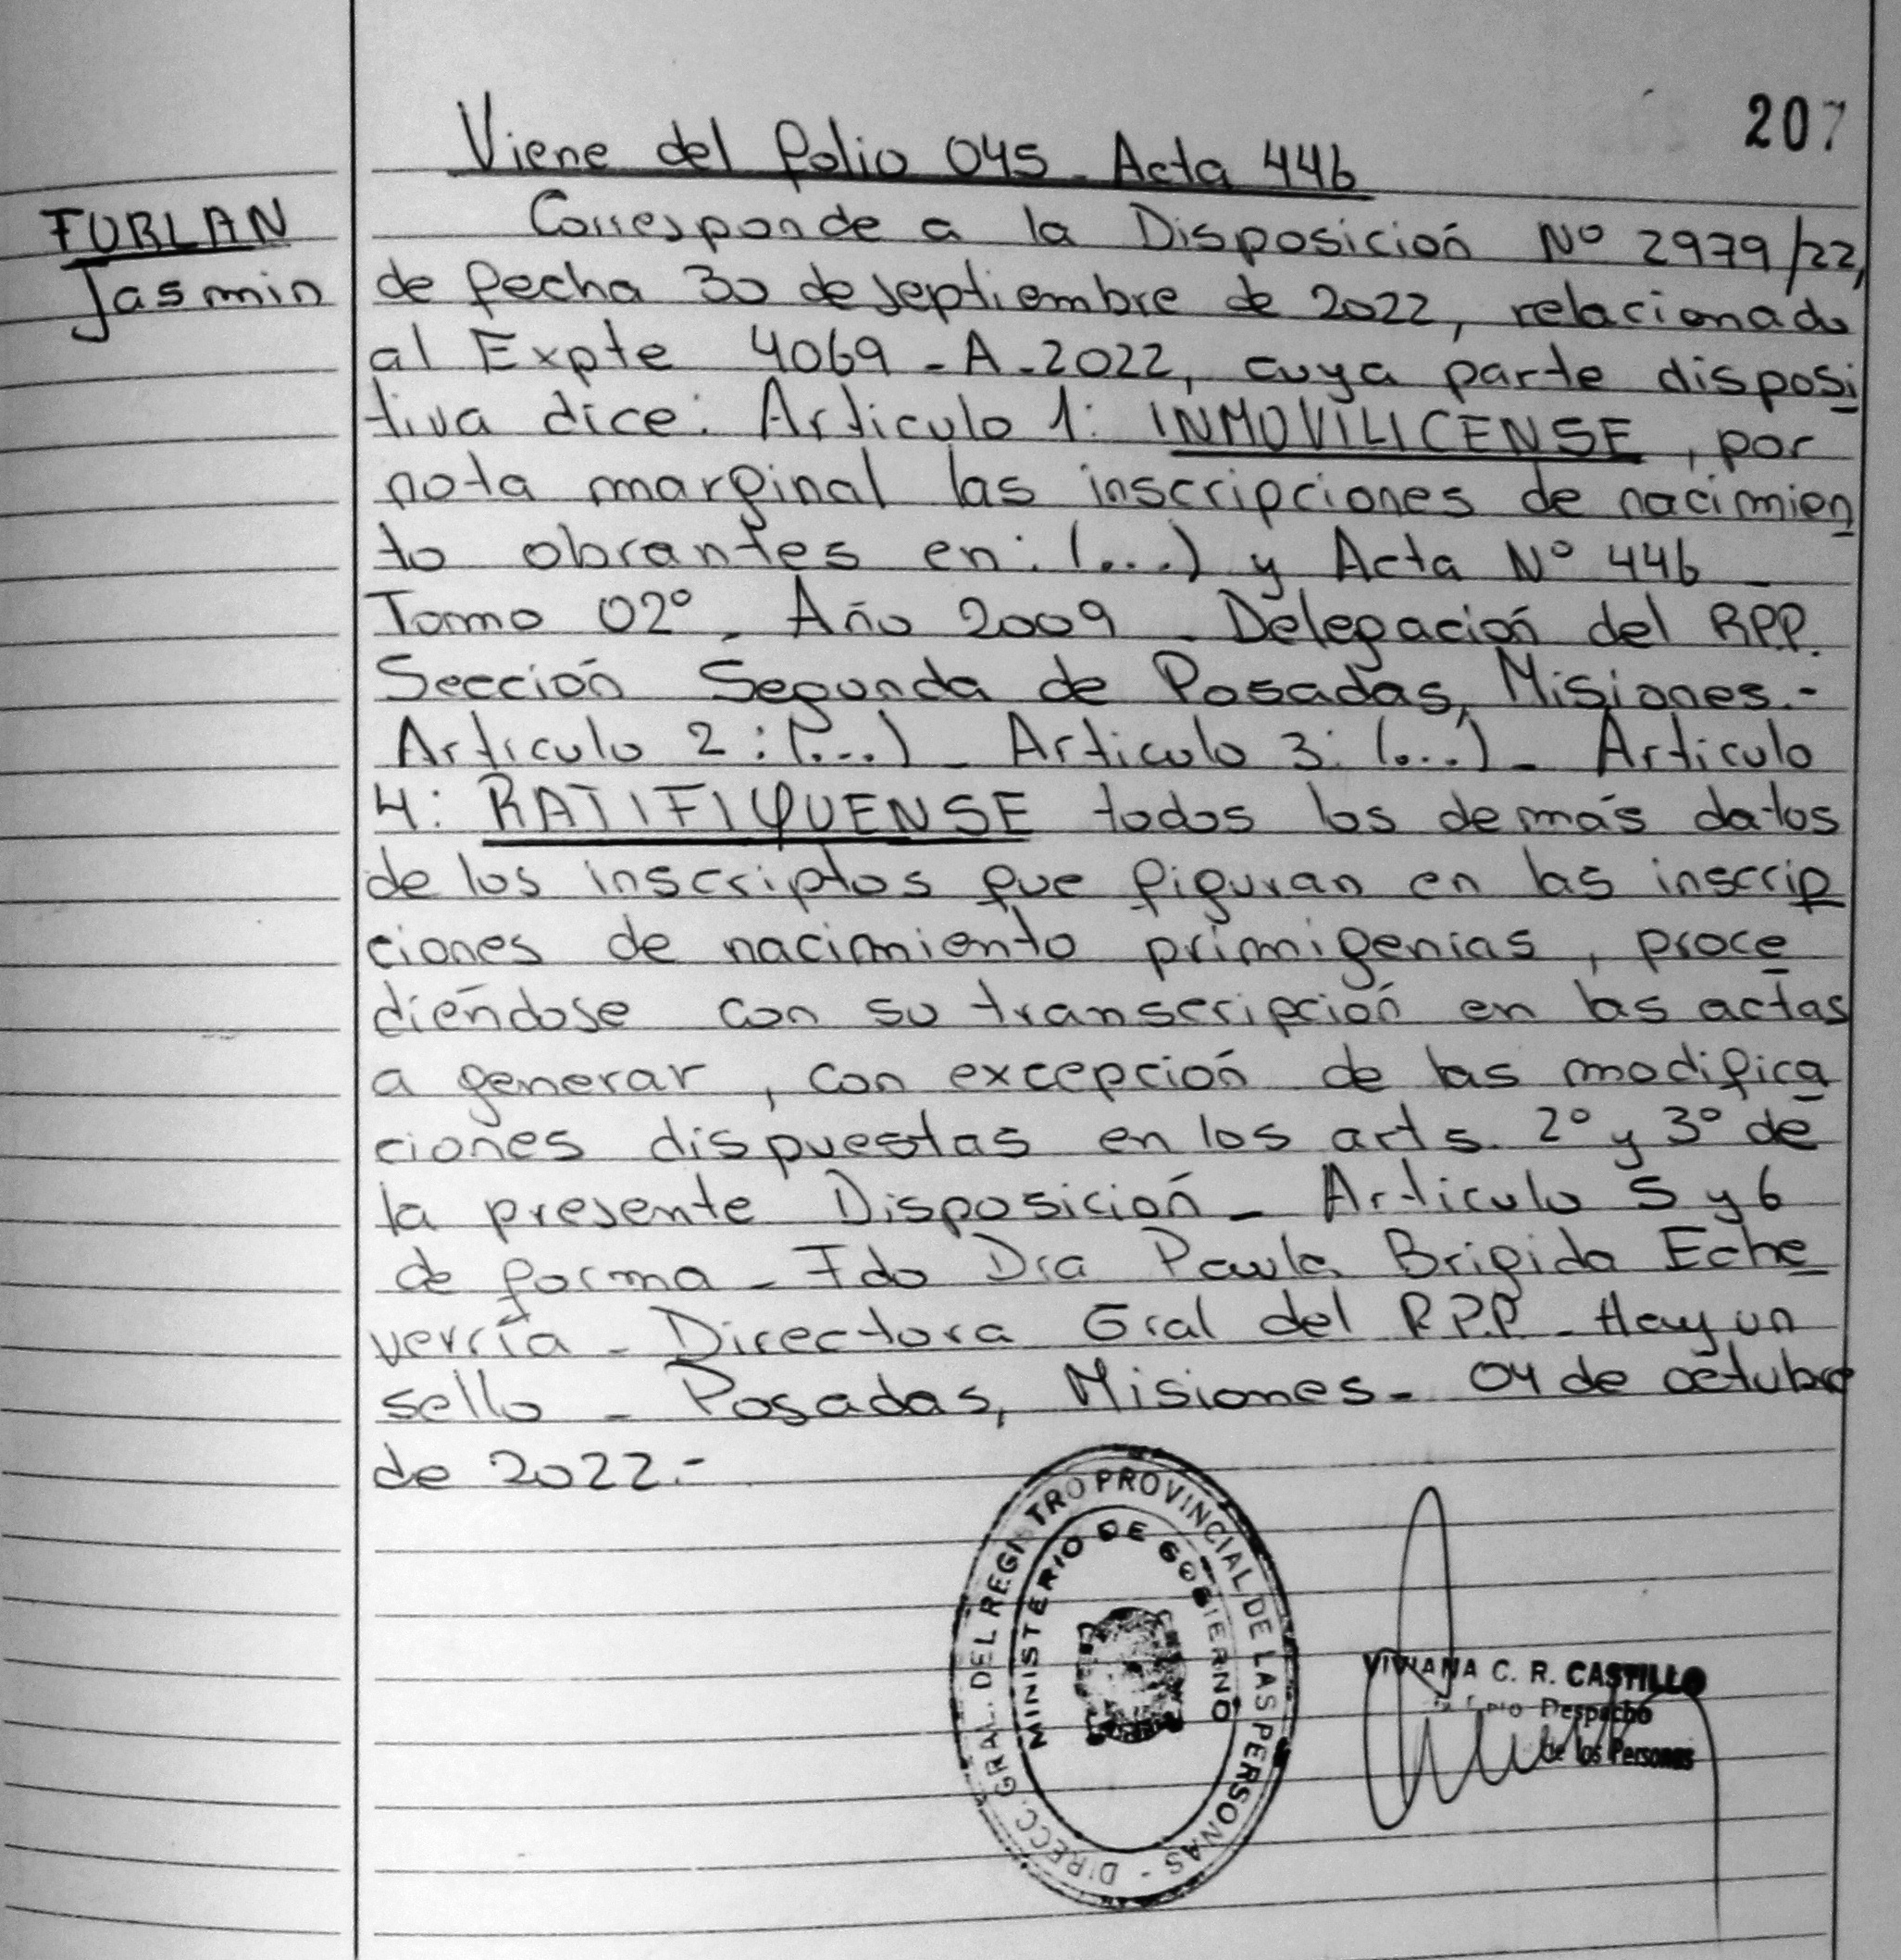 207
Viene del folio 045 - Acta 446
FURLAN
Jasmin
Corresponde a la Disposición Nº 2979/22,
de fecha 30 de septiembre de 2022, relacionado
al Expte 4069 - A - 2022, cuya parte disposi
tiva dice: Articulo 1: INMOVILICENSE, por
nota marginal las inscripciones de nacimien
to obrantes en: (...) y Acta Nº 446 -
Tomo 02º - Año 2009 - Delegación del RPP.
Sección Segunda de Posadas, Misiones.-
Articulo 2: (...) - Articulo 3: (...) - Articulo
4: RATIFIQUENSE todos los demás datos
de los inscriptos que figuran en las inscrip
ciones de nacimiento primigenias, proce
diéndose con su transcripción en las actas
a generar, con excepción de las modifica
ciones dispuestas en los arts. 2º y 3º de
la presente Disposición - Articulo 5 y 6
de forma - Fdo Dra Paula Brigida Eche
verría - Directora Gral del R.P.P - Hay un
sello - Posadas, Misiones - 04 de octubre
de 2022.-
DIRECC. GRAL. DEL REGISTRO PROVINCIAL DE LAS PERSONAS -
MINISTERIO DE GOBIERNO
VIVIANA C. R. CASTILLO
Despacho
de las Personas